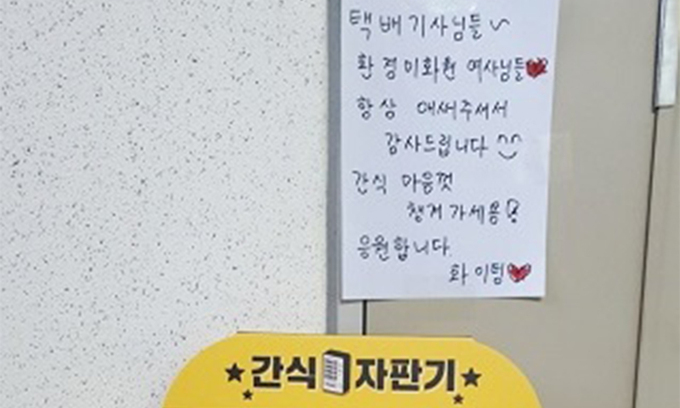 택배기사님들~
환경미화원 여사님들♥
항상 애써주셔서
감사드립니다^^
간식 마음껏
챙겨가세용
응원합니다.
화이팅♥
★간식 자판기★